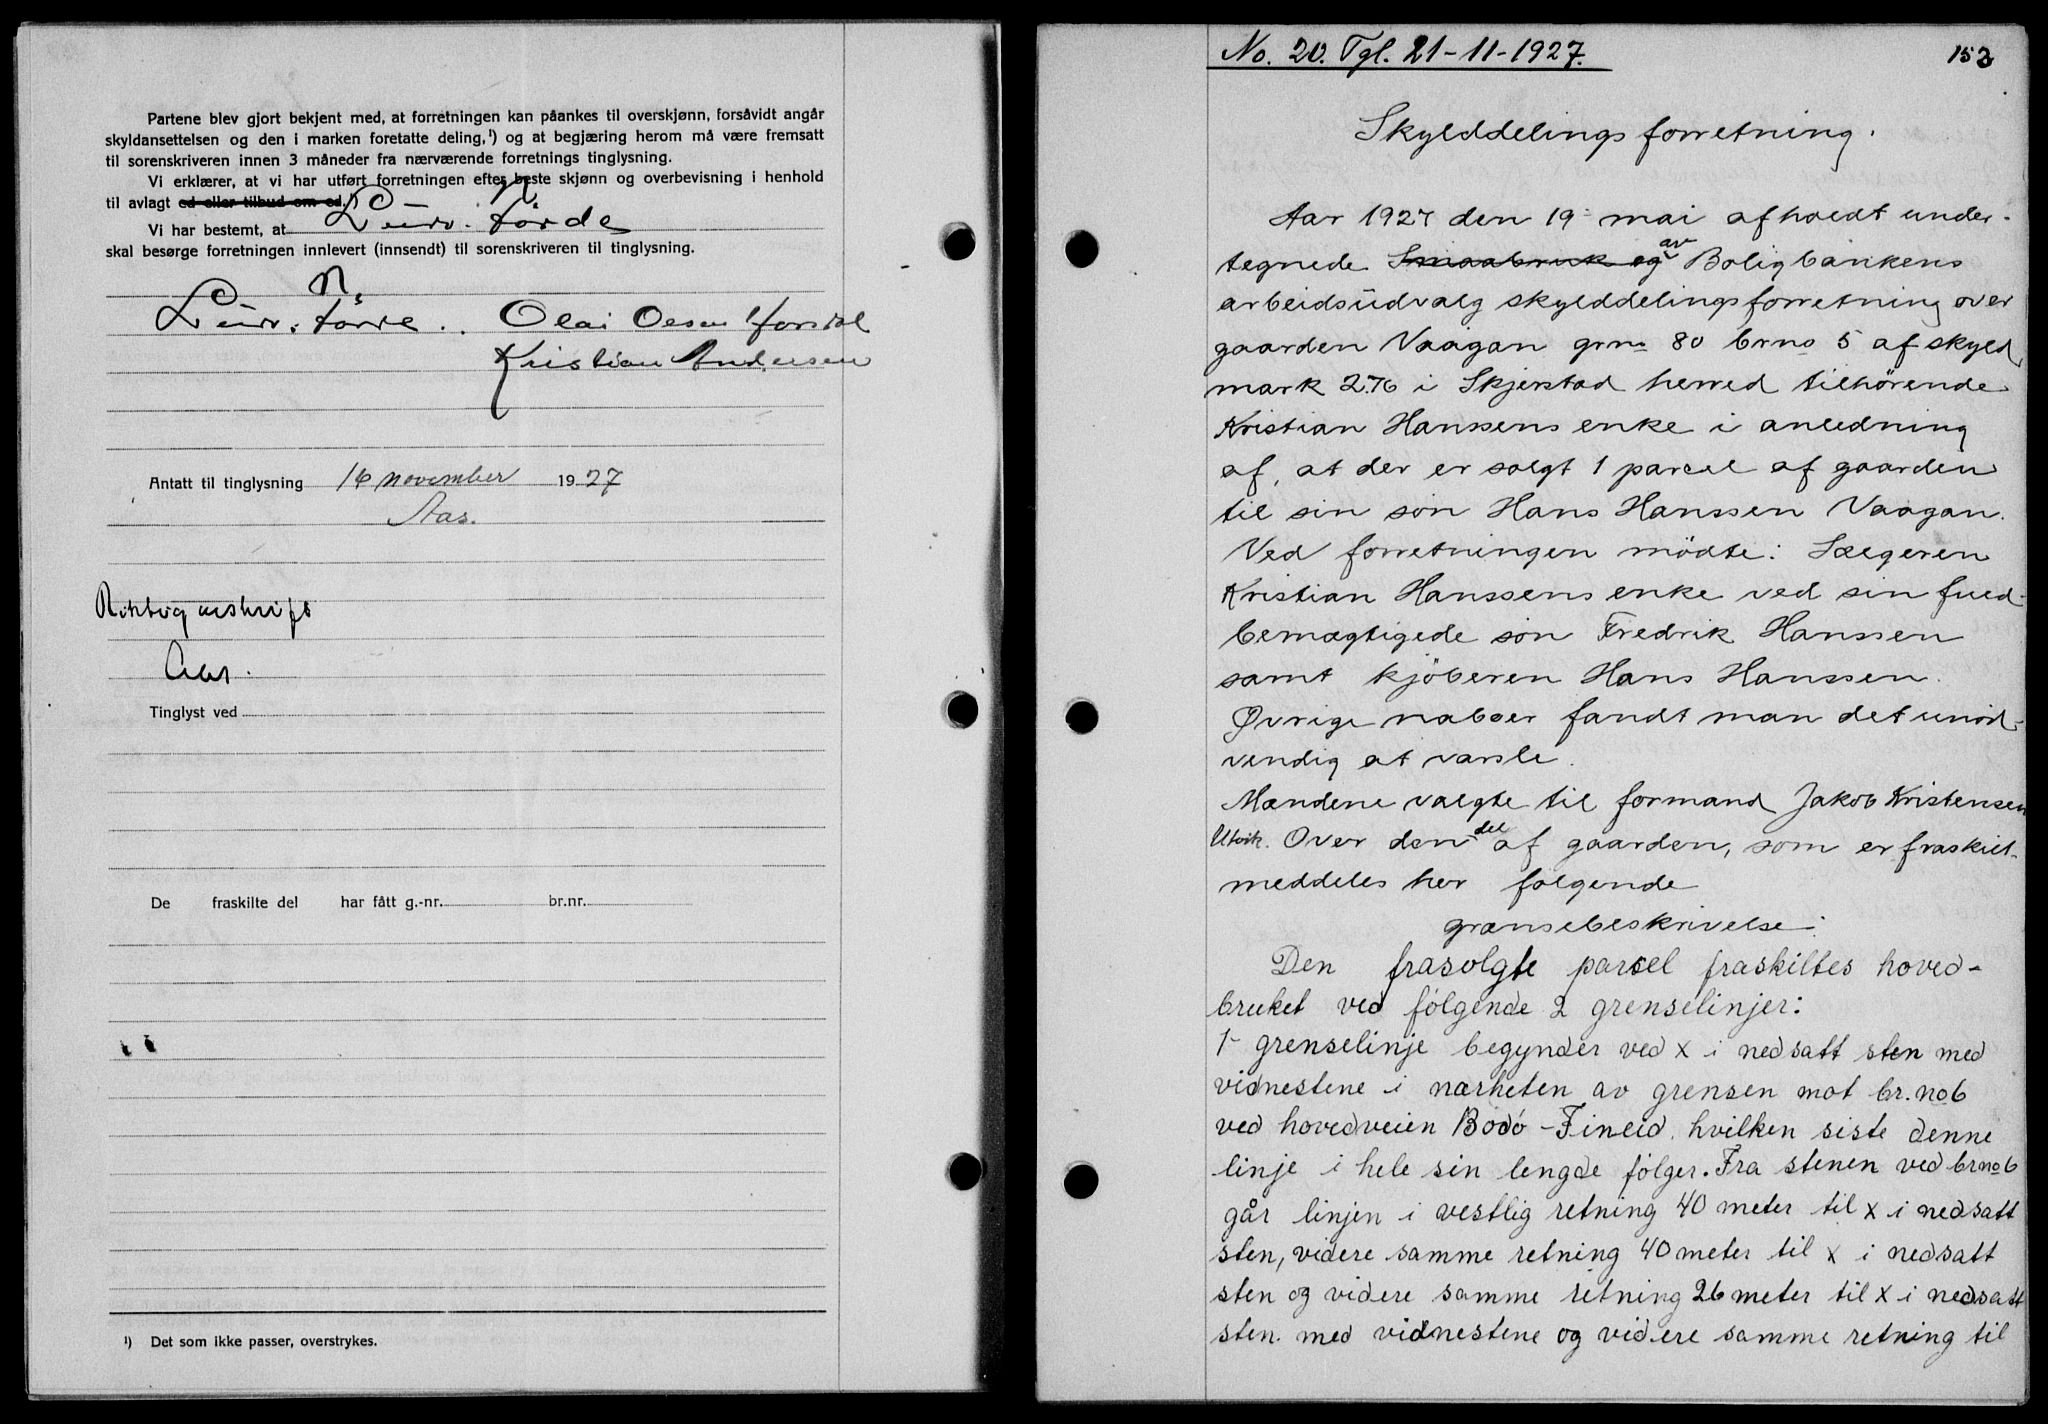 Partene blev gjort bekjent med, at forretningen kan påankes til overskjønn, forsåvidt angår
skyldansettelsen og den i marken foretatte deling,¹) og at begjæring herom må være fremsatt
til sorenskriveren innen 3 måneder fra nærværende forretnings tinglysning.
Vi erklærer, at vi har utført forretningen efter beste skjønn og overbevisning i henhold
til avlagt ed eller tilbud om ed.
Vi har bestemt, at Leirv. N. Førde
skal besørge forretningen innlevert (innsendt) til sorenskriveren til tinglysning.
N.
Olai Olsen
Kristian Andersen
Antatt til tinglysning 16 november 1927
Aas.
Tinglyst ved
De fraskilte del har fått g.-nr. br.nr.
¹) Det som ikke passer, overstrykes.
No. 20. Tgl. 21-11-1927. 153
Skylddelingsforretning.
Aar 1927 den 19 mai afholdt under-
tegnede Smaabruk og av Boligbankens
arbeidsudvalg skylddelingsforretning over
gaarden Vaagan grno 80 brno 5 af skyld
mark 2.76 i Skjerstad herred tilhørende
Kristian Hanssens enke i anledning
af, at der er solgt 1 parcel af gaarden
til sin søn Hans Hanssen Vaagan.
Ved forretningen mödte: Sælgeren
Kristian Hanssens enke ved sin fuld-
bemægtigede søn Fredrik Hanssen
samt kjöberen Hans Hanssen.
Øvrige naboer fandt man det unød-
vendig at varsle.
Mændene valgte til formand Jakob Kristensen
Utvik. Over den del af gaarden, som er fraskilt
meddeles her følgende
grænsebeskrivelse:
Den frasolgte parsel fraskiltes hoved-
bruket ved følgende 2 grenselinjer:
1- grenselinje begynder ved x i nedsatt sten med
vidnestene i nærheten av grensen mot br. no 6
ved hovedveien Bodó-Fineid, hvilken siste denne
linje i hele sin lengde følger. Fra stenen ved brno 6
går linjen i vestlig retning 40 meter til x i nedsatt
sten, videre samme retning 40 meter til x i nedsatt
sten og videre samme retning 26 meter til x i nedsatt
sten med vidnestene og videre samme retning til